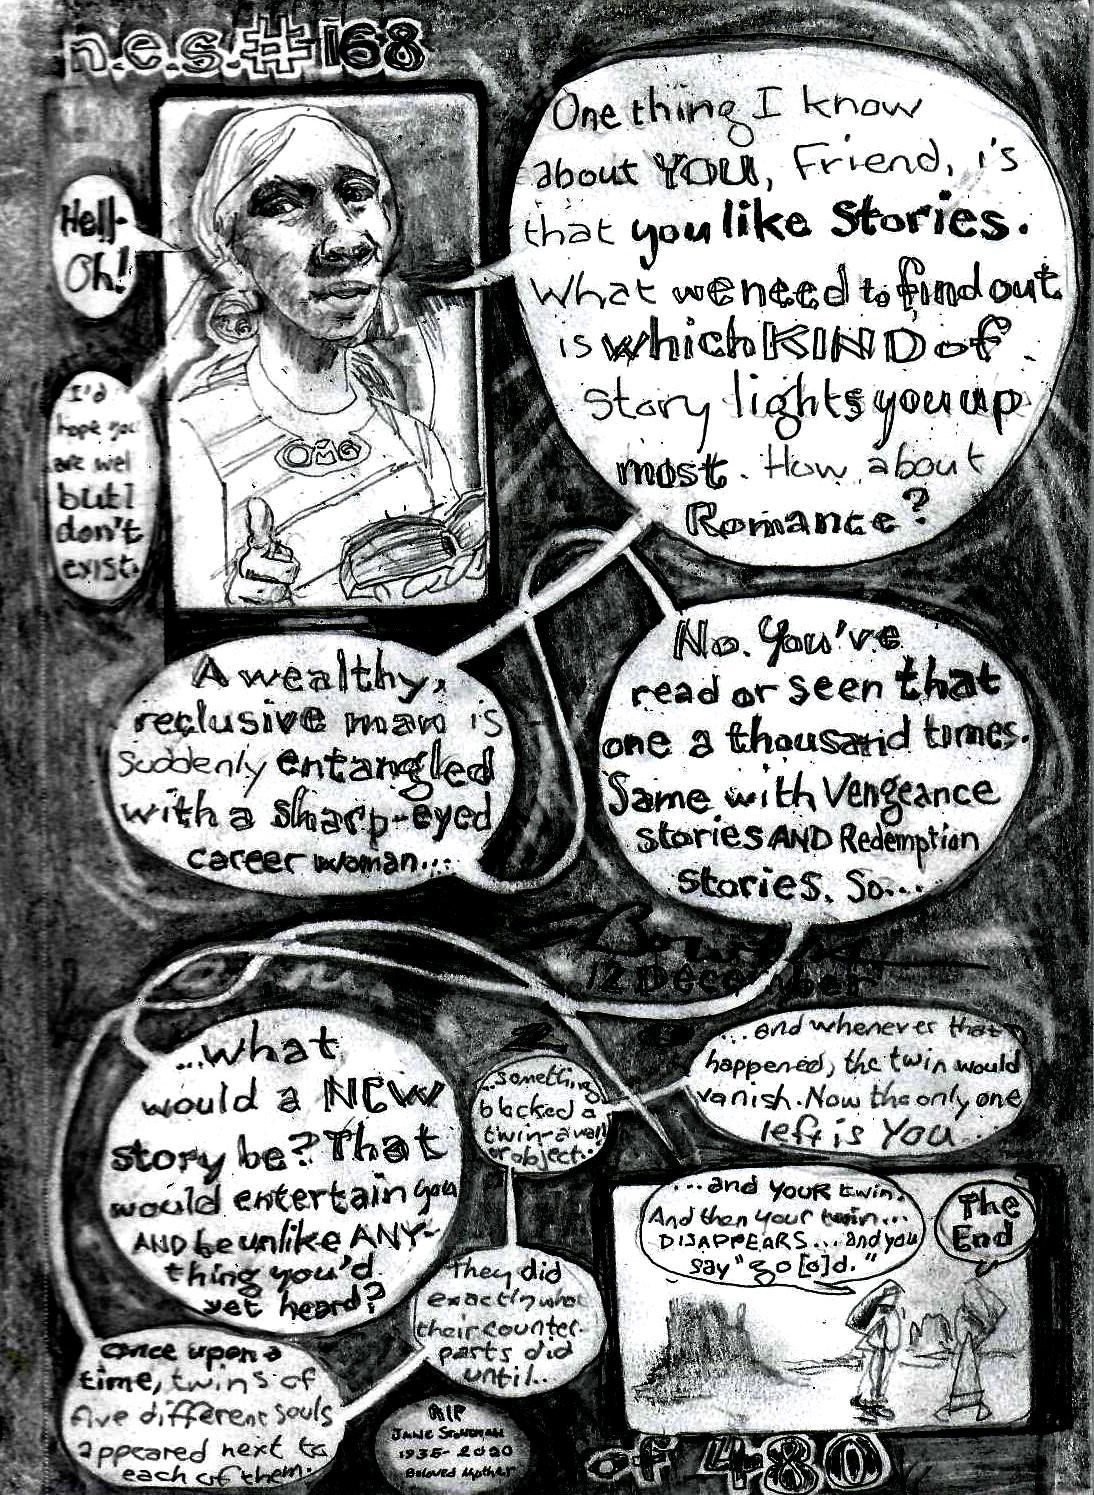 n.e.s.#168
Hell-
Oh!
I'd
hope you
are well
but I
don't
exist.
OMG
One thing I know
about YOU, Friend, is
that you like Stories.
What we need to find out
is which KIND of
story lights you up
most. How about
Romance?
A wealthy,
reclusive man is
suddenly entangled
with a sharp-eyed
career woman...
No. You've
read or seen that
one a thousand times.
Same with Vengeance
stories AND Redemption
stories. So...
12 December
...what
would a NEW
story be? That
would entertain you
AND be unlike ANY-
thing you'd
yet heard?
Once upon a
time, twins of
five different souls
appeared next to
each of them.
They did
exactly what
their counter-
parts did
until..
...something
blocked a
twin-a wall
or object..
...and whenever that
happened, the twin would
vanish. Now the only one
left is YOU...
...and YOUR twin.
And then your twin...
DISAPPEARS... and you
say "go[o]d."
The
End
RIP
JANE
1935-2020
Beloved Mother
of 480